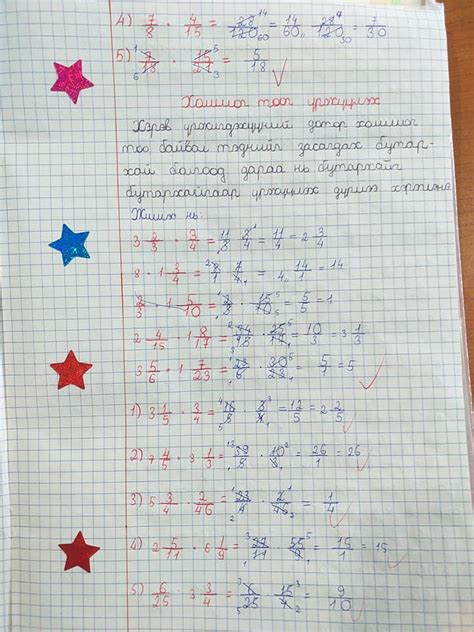 4) 7/8 · 4/15 = 28/120 = 14/60 = 28/120 = 7/30
5) 7/18 · 15/21 = 5/18
Холимог тоог үржүүлэх
Хэрэв үржигдэхүүний дотор холимог
тоо байвал тэднийг засагдах бутар-
хай болоод дараа нь бутархайг
бутархайгаар үржүүлэх дүрэм хэрэглэнэ
Жишээ нь:
3 2/3 · 3/4 = 11/3 · 3/4 = 11/4 = 2 3/4
8 · 1 3/4 = 8/1 · 7/4 = 14/1 = 14
2/3 · 1 5/10 = 2/3 · 15/10 = 5/5 = 1
2 4/15 · 1 8/17 = 34/15 · 25/17 = 10/3 = 3 1/3
3 5/6 · 1 7/23 = 23/6 · 30/23 = 5/1 = 5
1) 3 1/5 · 3/4 = 16/5 · 3/4 = 12/5 = 2 2/5
2) 7 4/5 · 3 1/3 = 39/5 · 10/3 = 26/1 = 26
3) 5 3/4 · 2/46 = 23/4 · 2/46 = 1/4
4) 2 5/11 · 6 1/9 = 27/11 · 55/9 = 15/1 = 15
5) 6/25 · 3 3/4 = 6/25 · 15/4 = 9/10